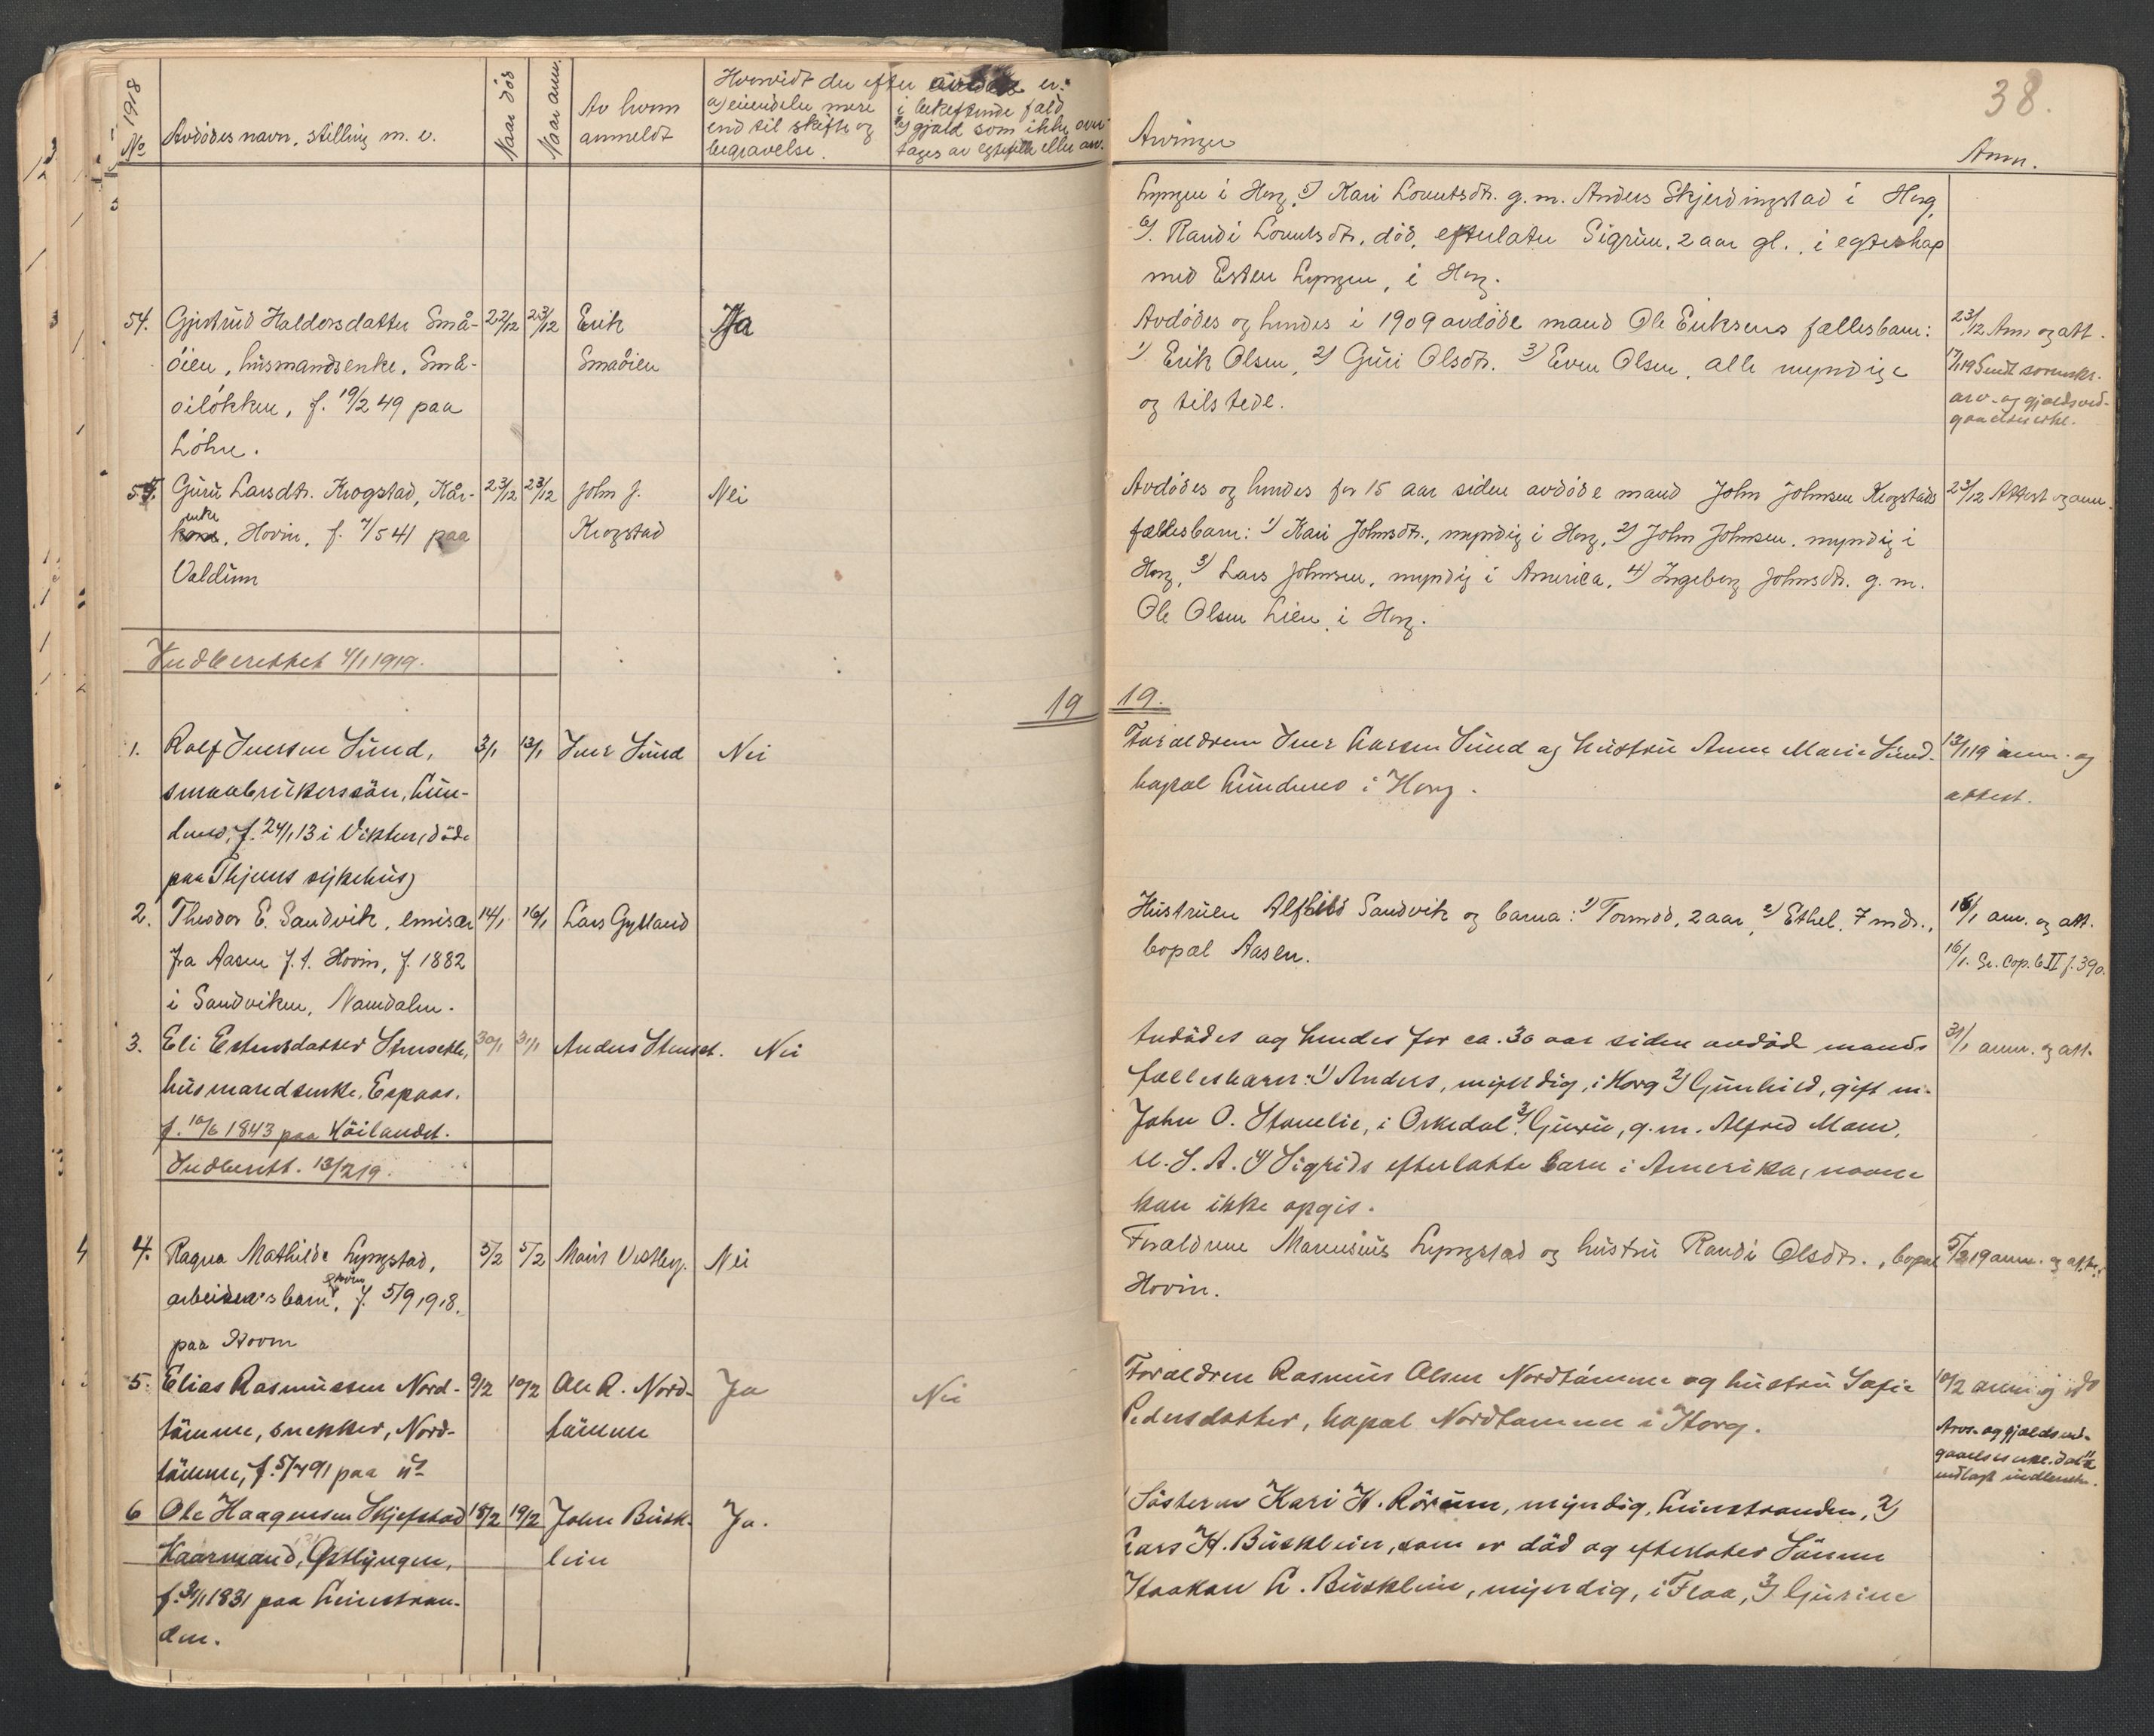 1918
No
Avdødes navn, stilling m. v.
Naar død
Naar anm.
Av hvem
anmeldt
Hvorvidt der efter avdøde er:
a) eiendele mere
end til skifte og
begravelse.
i bekræftende fald
b) gjæld som ikke over-
tages av egtefælle eller arv.
54. Gjertrud Haldorsdatter Små- 22/12 23/12 Erik Ja
øien, husmandsenke, Små- Smaøien
øiløkken, f. 19/2 49 paa
Løhre.
55. Guru Larsdtr. Krogstad, Kår- 23/12 23/12 John J. Nei
enke
kone, Hovin, f. 7/5 41 paa Krogstad
Valdum
Indberettet 4/1 1919.
19
1. Rolf Iversen Sund, 3/1 13/1 Iver Sund Nei
smaabrukerssøn, Lun-
demo, f. 24/1 13 i Vikten, døde
paa Thjems sykehus)
2. Theodor E. Sandvik, emisær 14/1 16/1 Lars Gylland
fra Aasen f. t. Hovin, f. 1882
i Sandviken, Namdalen.
3. Eli Estensdatter Stensetli, 30/1 31/1 Anders Stenset. Nei
husmandsenke, Espaas.
f. 10/6 1843 paa Høilandet.
Indberett. 13/2 19.
4. Ragna Mathilde Lyngstad, 5/2 5/2 Mauis Vestberg. Nei
arbeiders barn, f. 5/9 1918.
paa Hovin
5. Elias Rasmussen Nord- 9/2 10/2 Ole R. Nord- Ja Nei
tømme, snekker, Nord- tømme
tømme, f. 5/4 91 paa
6 Ole Haagensen Skjefstad 18/2 19/2 John Busk- Ja.
Kaarmand, Østlyngen, lein
f. 31/1 1831 paa Leinstran-
den.
38.
Arvinger
Anm.
Lyngen i Horg, 5) Kari Lorentsdtr. g. m. Anders Skjerdingstad i Horg,
6) Randi Lorentsdtr, død, efterlater Sigrun, 2 aar gl., i egteskap
med Esten Lyngen, i Horg.
Avdødes og hendes i 1909 avdøde mand Ole Eriksens fællesbarn: 23/12 Anm og att.
1) Erik Olsen, 2) Guri Olsdtr. 3) Even Olsen, alle myndige 17/1 19 Sendt sorenskr.
og tilstede. arv- og gjældsved-
gaaelseserkl.
Avdødes og hendes for 15 aar siden avdøde mand John Johnsen Krogstads 23/12 Attest og anm.
fællesbarn: 1) Kari Johnsdtr., myndig i Horg, 2) John Johnsen, myndig i
Horg, 3) Lars Johnsen, myndig i America, 4) Ingeborg Johnsdtr. g. m.
Ole Olsen Lien, i Horg.
19.
Forældrene Iver Larsen Sund og hustru Anne Marie Sund. 13/1 19 anm. og
bopæl Lundemo i Horg. attest.
Hustruen Alfhild Sandvik og barna: 1) Tormod, 2 aar, 2) Ethel, 7 mdr., 16/1 anm. og att.
bopæl Aasen. 16/1. Se. Cop. b II f. 390.
Avdødes og hendes for ca. 30 aar siden avdøde mands 31/1 anm. og att.
fællesbarn: 1) Anders, myndig, i Horg 2) Gunhild, gift m.
John O. Stamlie, i Orkedal, 3) Guru, g. m. Alfred Moen,
U. S. A. 4) Sigrids efterlatte barn i Amerika, navne
kan ikke opgis.
Forældrene Mareusius Lyngstad og hustru Randi Olsdtr., bopæl 5/2 19 anm. og attest
Hovin.
Forældrene Rasmus Olsen Nordtømme og hustru Sofie 10/2 anm. og
Pedersdatter, bopæl Nordtømme i Horg.
Arvs- og gjældsved-
gaaelseserkl.
Søsteren Kari H. Rørum, myndig, Leinstranden, 2)
Lars H. Busklein, som er død og efterlater Sønnen
Haakon L. Busklein, myndig, i Flaa, 3) Gurine